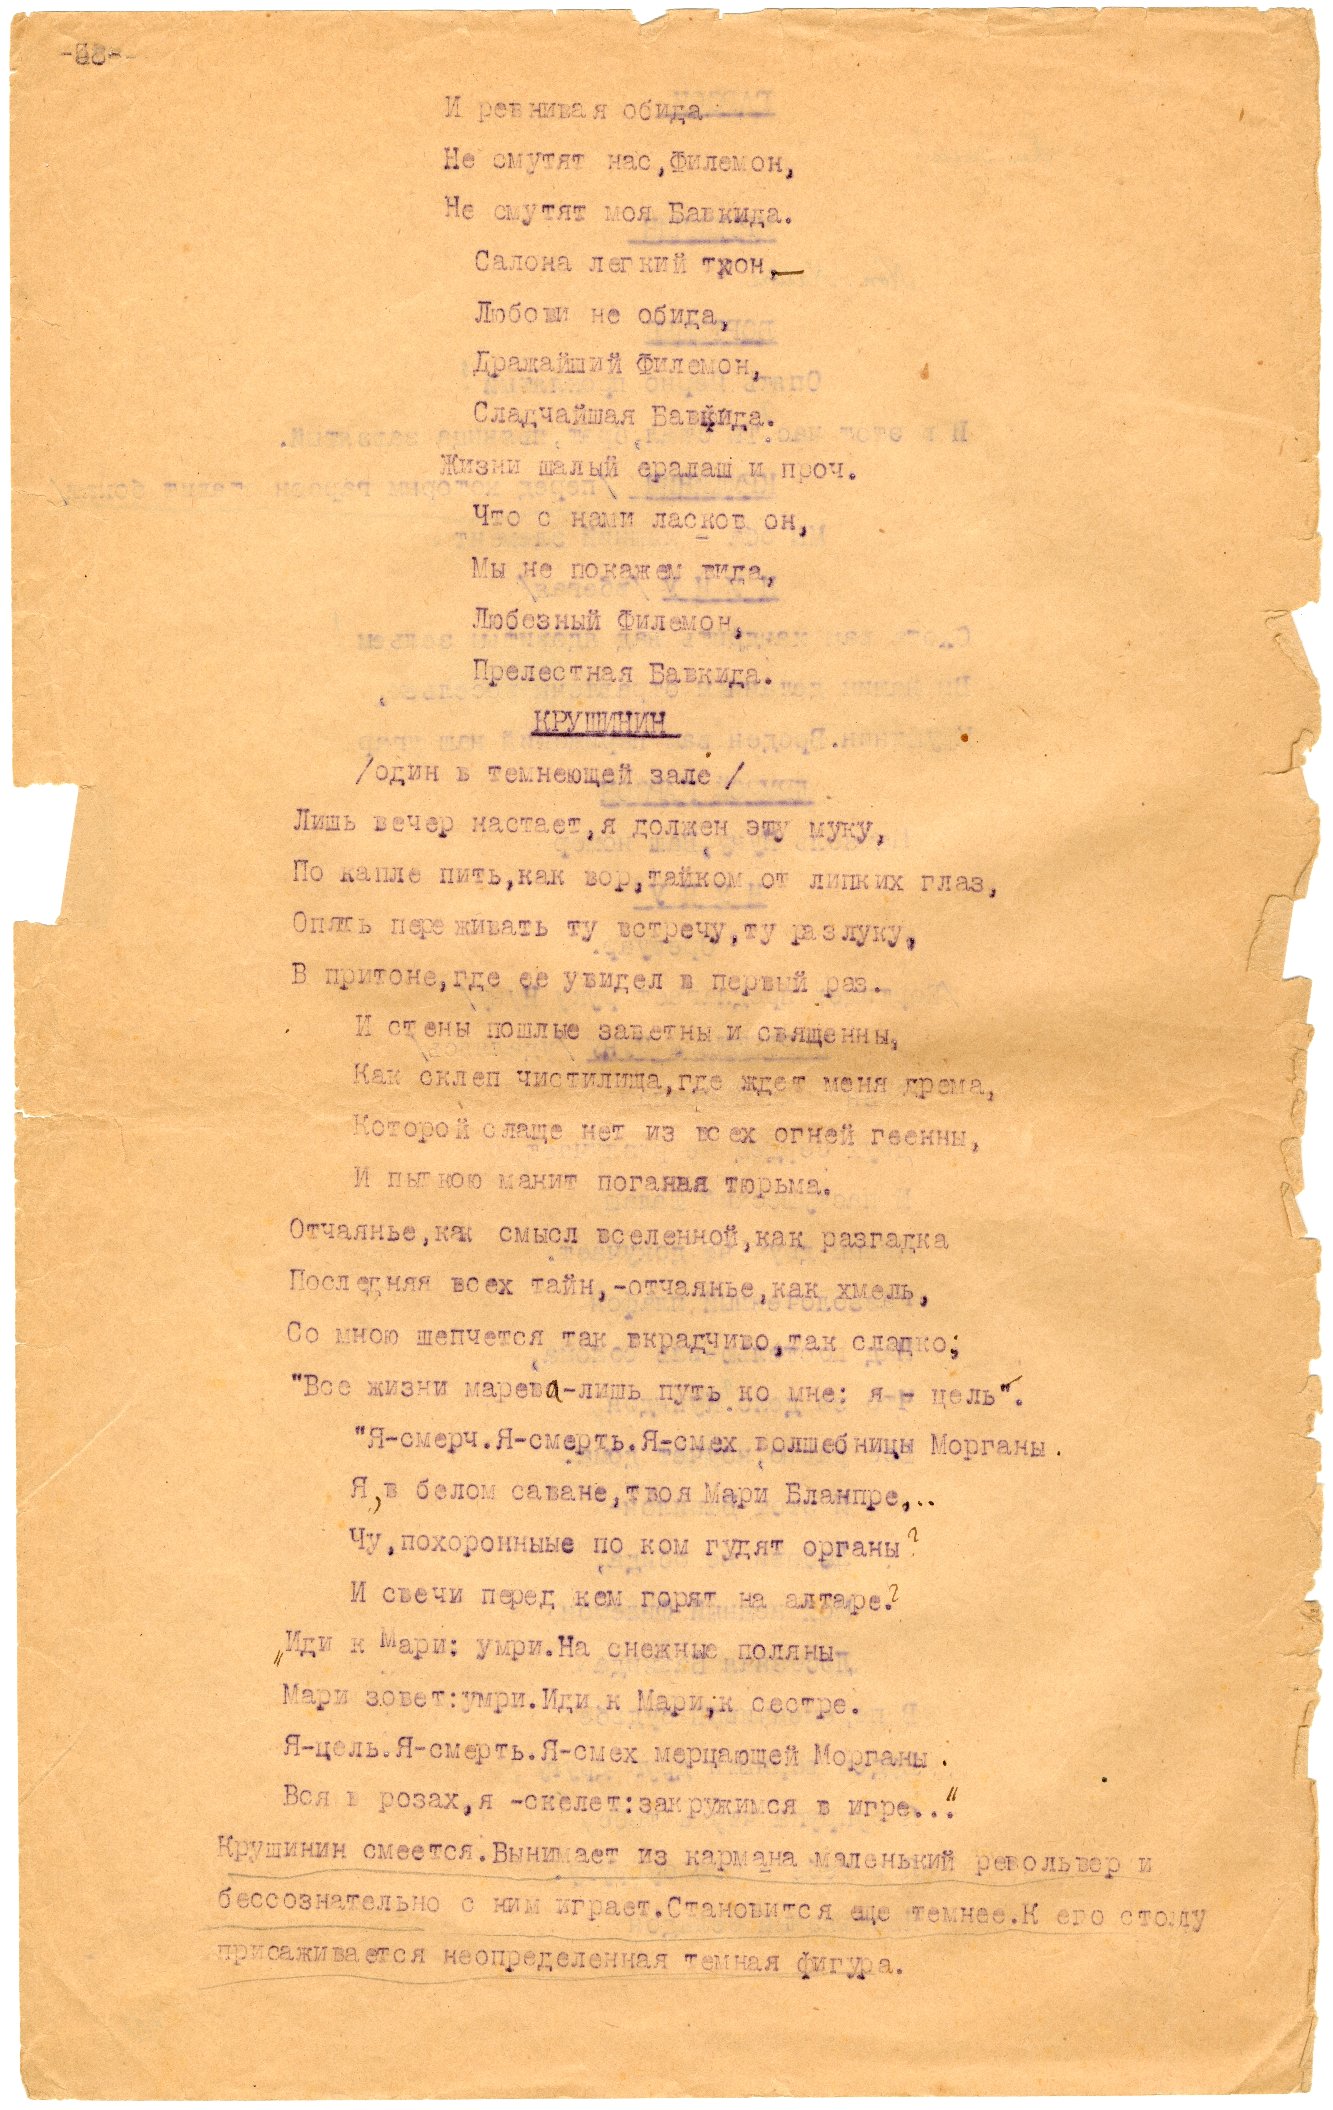 И ревнивая обида
Не смутят нас,Филемон,
Не смутят моя Бавкида.
Салона легкий тон,—
Любови не обида,
Дражайший Филемон,
Сладчайшая Бавкида.
Жизни шалый ералаш и проч.
Что с нами ласков он,
Мы не покажем вида,
Любезный Филемон,
Прелестная Бавкида.
КРУШИНИН
/один в темнеющей зале/
Лишь вечер настает,я должен эту муку,
По капле пить,как вор,тайком от липких глаз,
Опять переживать ту встречу,ту разлуку,
В притоне,где ее увидел в первый раз.
И стены пошлые заветны и священны,
Как склеп чистилища,где ждет меня дрема,
Которой слаще нет из всех огней геенны,
И пыткою манит поганая тюрьма.
Отчаянье,как смысл вселенной,как разгадка
Последняя всех тайн,-отчаянье,как хмель,
Со мною шепчется так вкрадчиво,так сладко;
"Все жизни марева-лишь путь ко мне: я - цель".
"Я-смерч.Я-смерть.Я-смех волшебницы Морганы.
Я,в белом саване,твоя Мари Бланпре,..
Чу,похоронныые по ком гудят органы?
И свечи перед кем горят на алтаре.?
„Иди к Мари: умри.На снежные поляны
Мари зовет:умри.Иди к Мари,к сестре.
Я-цель.Я-смерть.Я-смех мерцающей Морганы.
Вся в розах,я -скелет:закружимся в игре..."
Крушинин смеется.Вынимает из кармана маленький револьвер и
бессознательно с ним играет.Становится еще темнее.К его столу
присаживается неопределенная темная фигура.